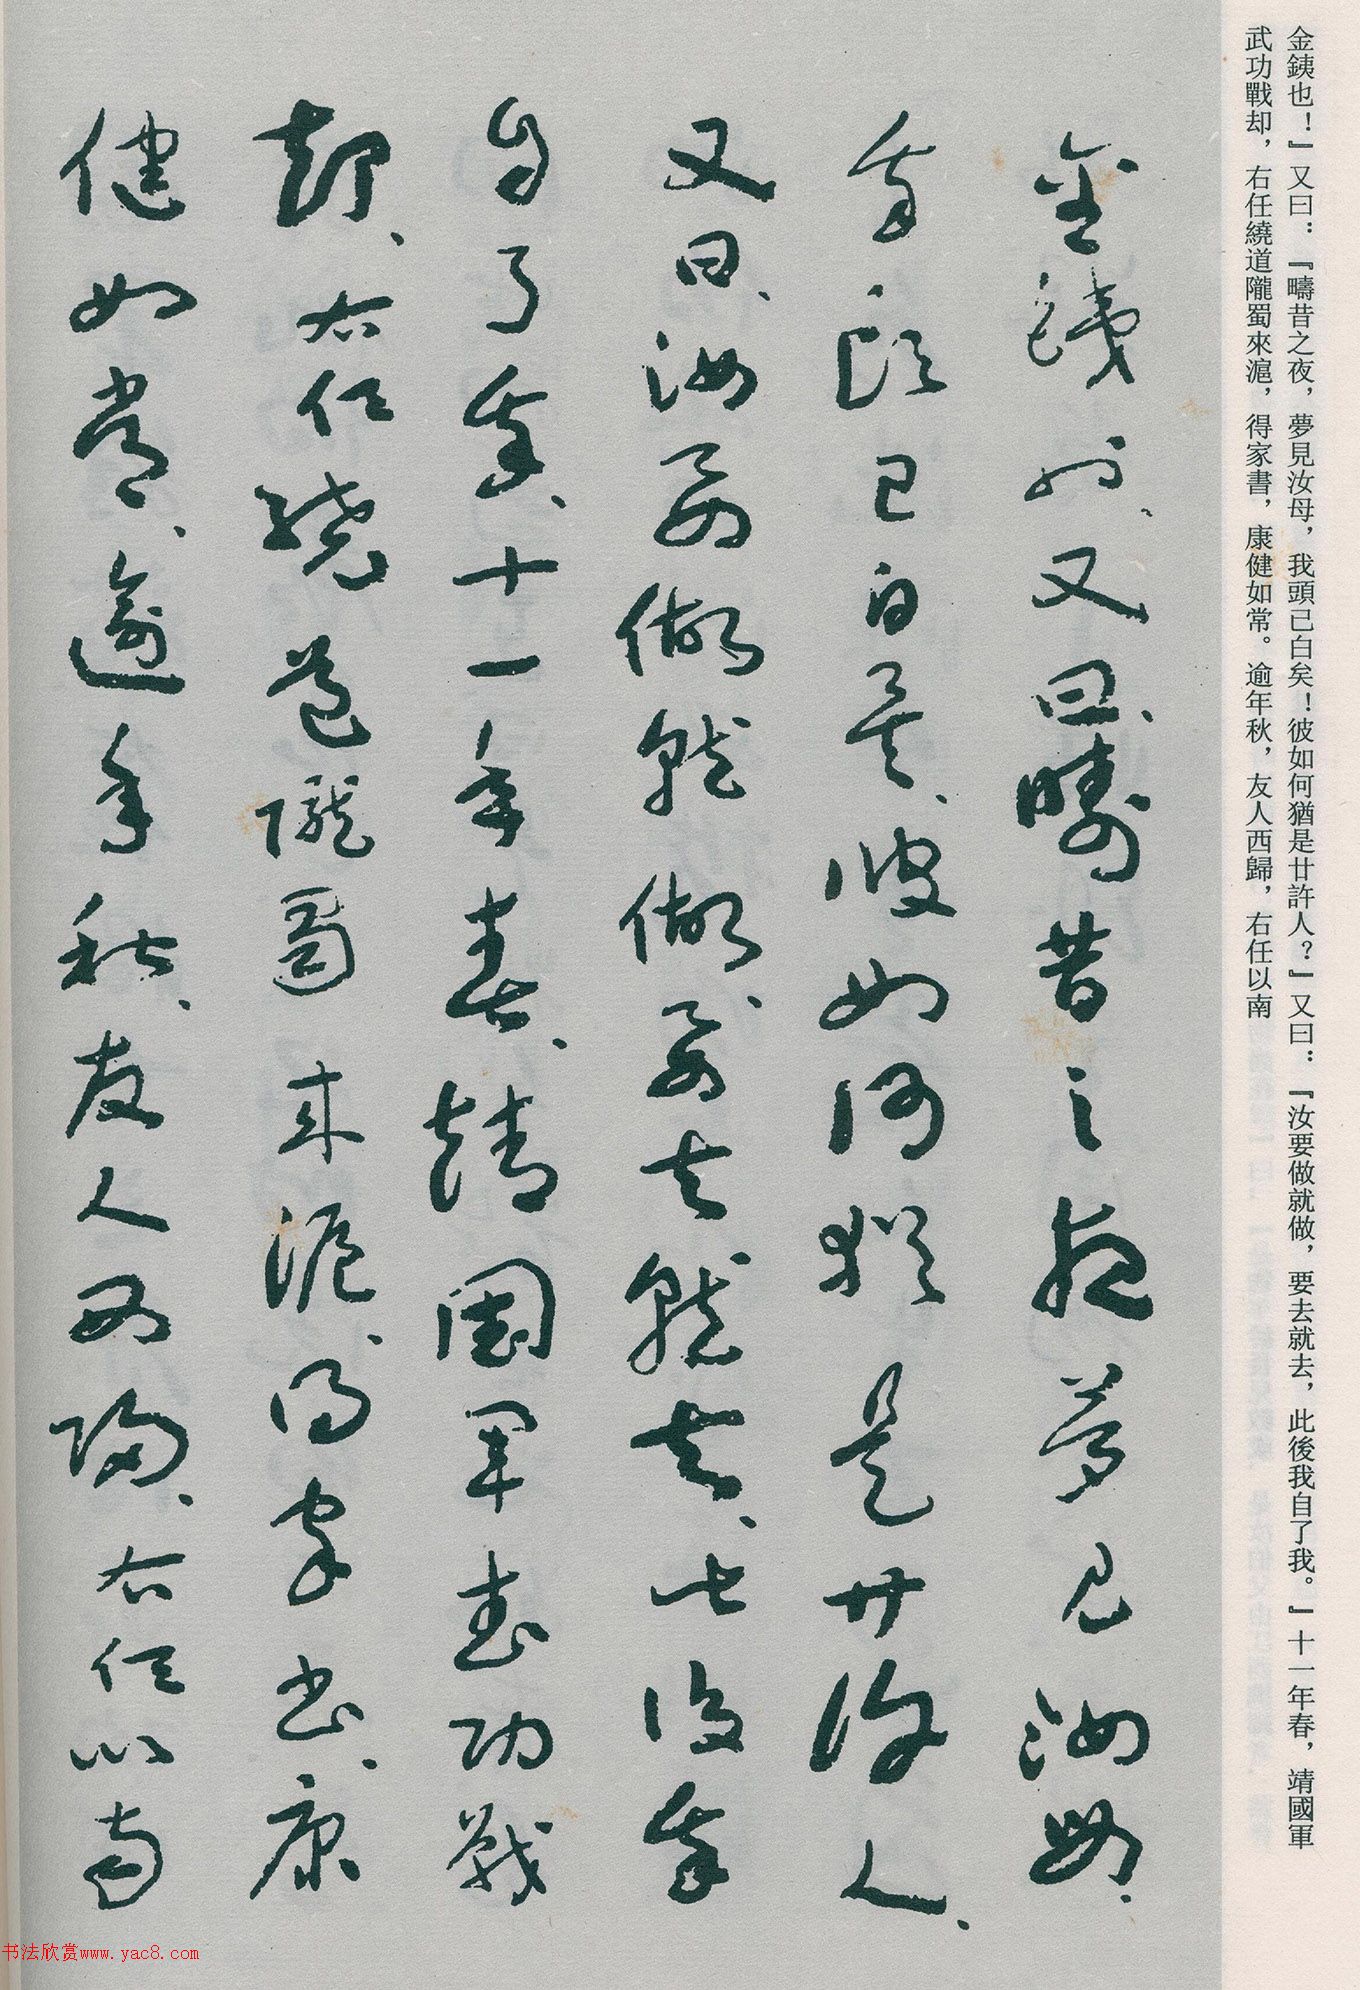 金銕也！』又曰：『疇昔之夜，夢見汝母，我頭已白矣！彼如何猶是廿許人？』又曰：『汝要做就做，要去就去，此後我自了我。』十一年春，靖國軍
武功戰却，右任繞道隴蜀來滬，得家書，康健如常。逾年秋，友人西歸，右任以南
金銕也、又曰、疇昔之夜夢見汝母、
我頭已白矣、彼如何猶是廿許人、
又曰、汝要做就做、要去就去、此後我
自了我、十一年春、靖國軍武功戰
却、右任繞道隴蜀來滬、得家書、康
健如常、逾年秋、友人西歸、右任以南
书法欣赏www.yac8.com